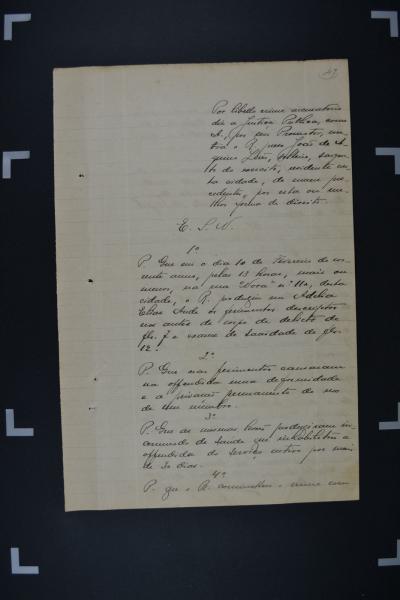 Por libello crime accusatorio
diz a Justiça Publica, como
A., por seu Promotor, con-
tra o R. preso João de A
Dias, solteiro, sargen-
to do exercito, residente nes-
ta cidade, de nome pre-
cedente, por esta ou me-
lhor forma de direito.
E. S. N.
1º
P. Que em o dia 10 de Fevereiro do cor-
rente anno, pelas 13 horas, mais ou
menos, na rua "Nova" nº 112, desta
cidade, o R. produziu em Adelia
Elias os ferimentos descriptos
nos autos de corpo de delicto de
fls. 7 e exame de sanidade de fls
12.
2º
P. Que esses ferimentos causaram
na offendida uma deformidade
e a privação permanente do uso
de um membro.
3º
P. Que os mesmos produziram in-
commodo de saude que inhabilitou a
offendida do serviço activo por mais
de 30 dias.
4º
P. que o R. commetteu o crime com